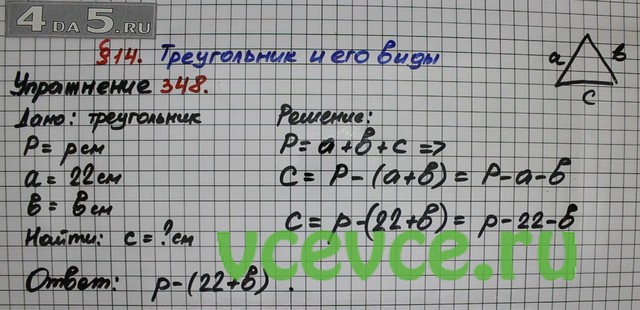 4 DA 5.RU
§14. Треугольник и его виды
Упражнение 348.
a в
c
Дано: треугольник
P = p см
a = 22 см
в = в см
Найти: c = ? см
Решение:
P = a + в + c =>
C = P - (a + в) = P - a - в
C = p - (22 + в) = p - 22 - в
Ответ: p - (22 + в).
vcevce.ru